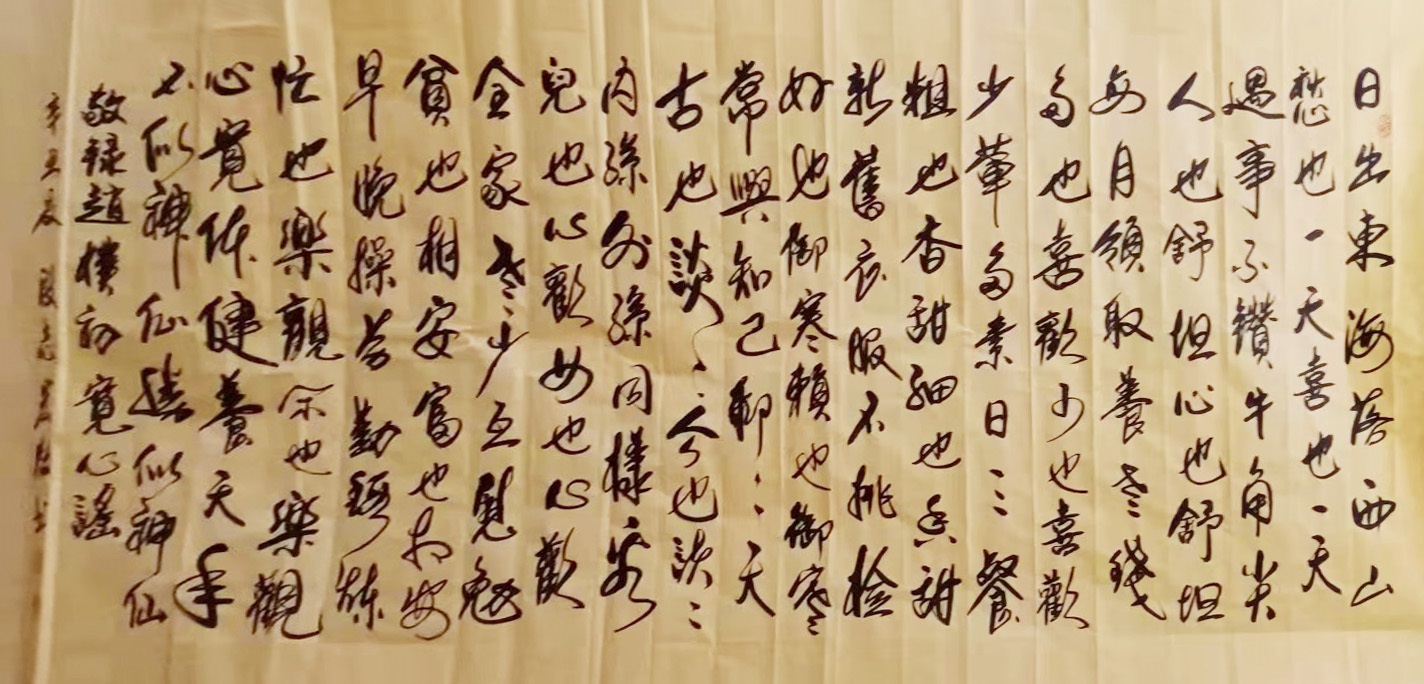 日出東海落西山
愁也一天喜也一天
遇事不鑽牛角尖
人也舒坦心也舒坦
每月領取養老錢
多也喜歡少也喜歡
少葷多素日三餐
粗也香甜細也香甜
新舊衣服不挑檢
好也御寒賴也御寒
常與知己聊聊天
古也談談今也談談
内孫外孫同樣看
兒也心歡女也心歡
全家老少互慰勉
貧也相安富也相安
早晚操勞勤鍛煉
忙也樂觀閑也樂觀
心寬体健養天年
不似神仙勝似神仙
敬録趙樸初寬心謠
辛丑夏